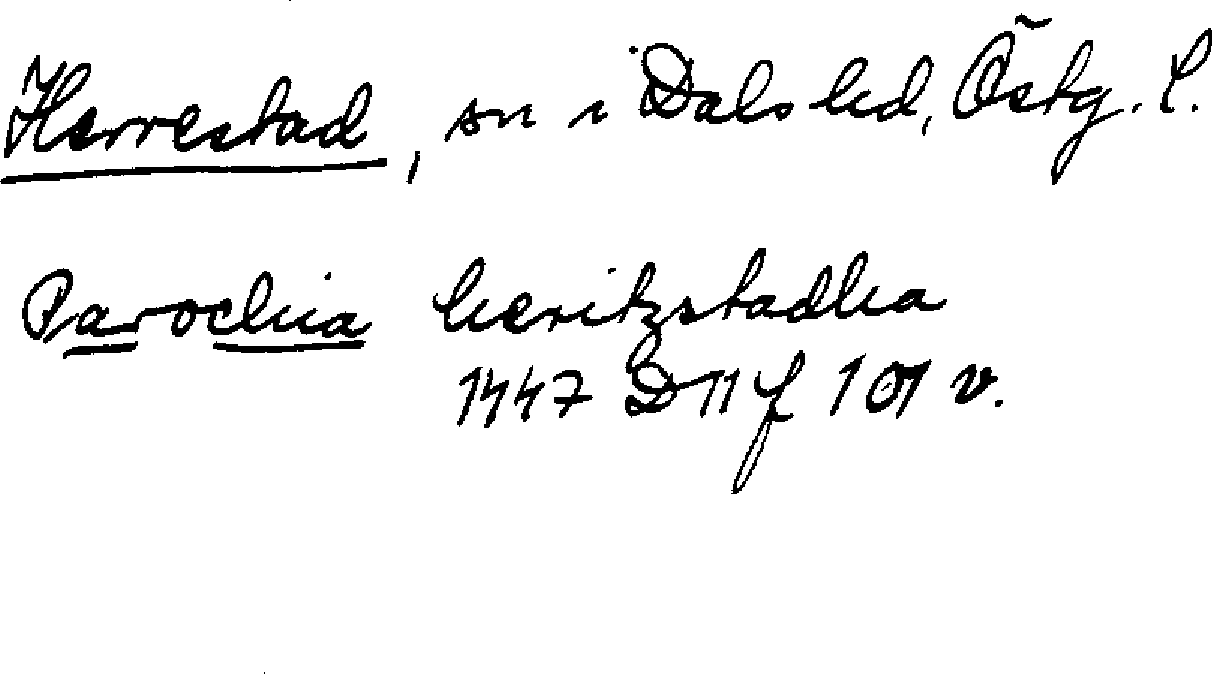 Herrestad, sn i Dals hd, Östg. l.
Parochia heritzstadha
1447 D 11 f 101 v.